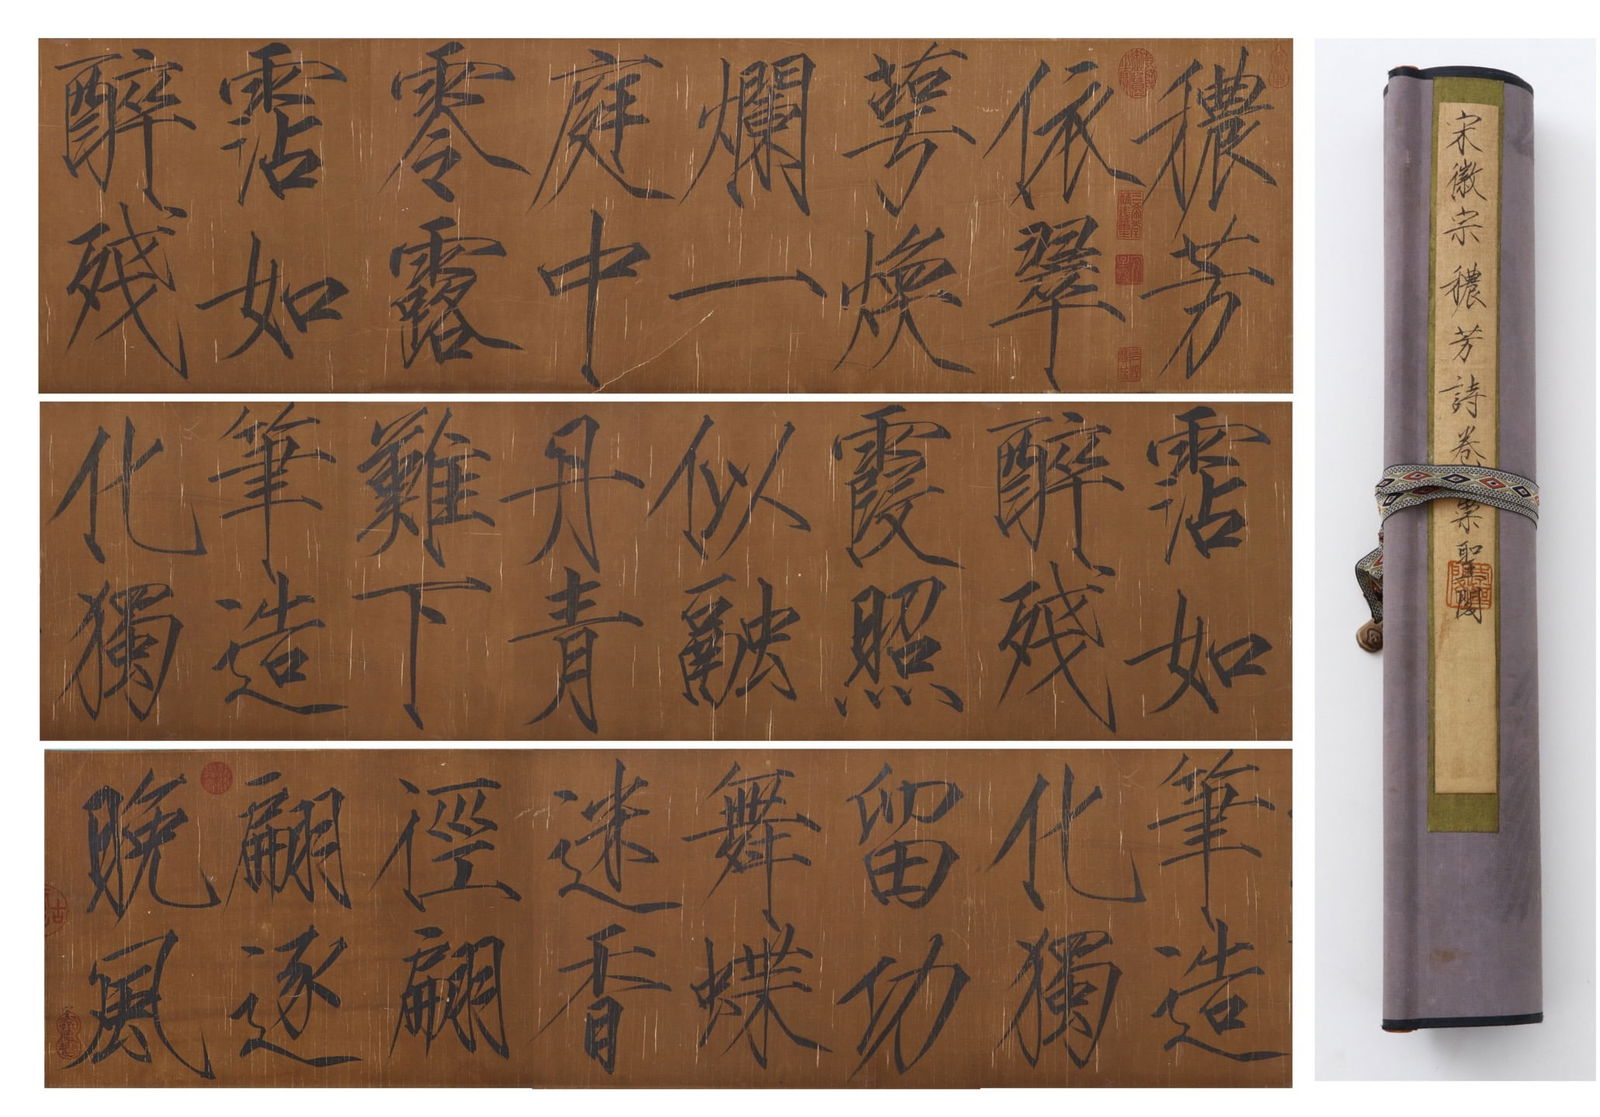 穠芳
依翠
萼煥
爛一
庭中
零露
霑如
醉殘
霑如
醉殘
霞照
似融
丹青
難下
筆造
化獨
筆造
化獨
留功
舞蝶
迷香
徑翩
翩逐
晚風
宋徽宗 穠芳詩卷 集聖閣